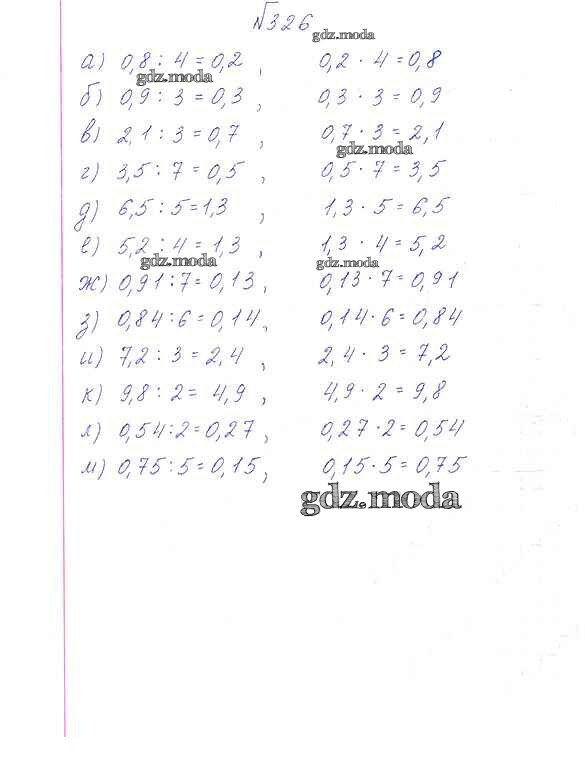 №326
gdz.moda
а) 0,8 : 4 = 0,2 , 0,2 · 4 = 0,8
gdz.moda
б) 0,9 : 3 = 0,3 , 0,3 · 3 = 0,9
в) 2,1 : 3 = 0,7 , 0,7 · 3 = 2,1
gdz.moda
г) 3,5 : 7 = 0,5 , 0,5 · 7 = 3,5
д) 6,5 : 5 = 1,3 , 1,3 · 5 = 6,5
е) 5,2 : 4 = 1,3 , 1,3 · 4 = 5,2
gdz.moda gdz.moda
ж) 0,91 : 7 = 0,13 , 0,13 · 7 = 0,91
з) 0,84 : 6 = 0,14 , 0,14 · 6 = 0,84
и) 7,2 : 3 = 2,4 , 2,4 · 3 = 7,2
к) 9,8 : 2 = 4,9 , 4,9 · 2 = 9,8
л) 0,54 : 2 = 0,27 , 0,27 · 2 = 0,54
м) 0,75 : 5 = 0,15 , 0,15 · 5 = 0,75
gdz.moda